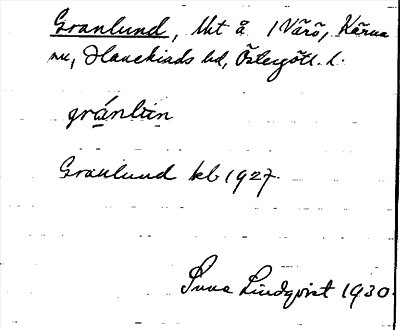 Granlund, lht å 1 Vårö, Kärna
sn, Hanekinds hd, Östergötl. l.
gránlun
Granlund kb 1927.
Suna Lindqvist 1930.